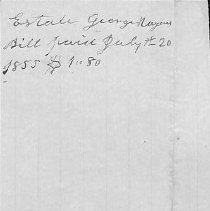 Estate George Rogers
Bill paid July th 20
1855 $ 1.80